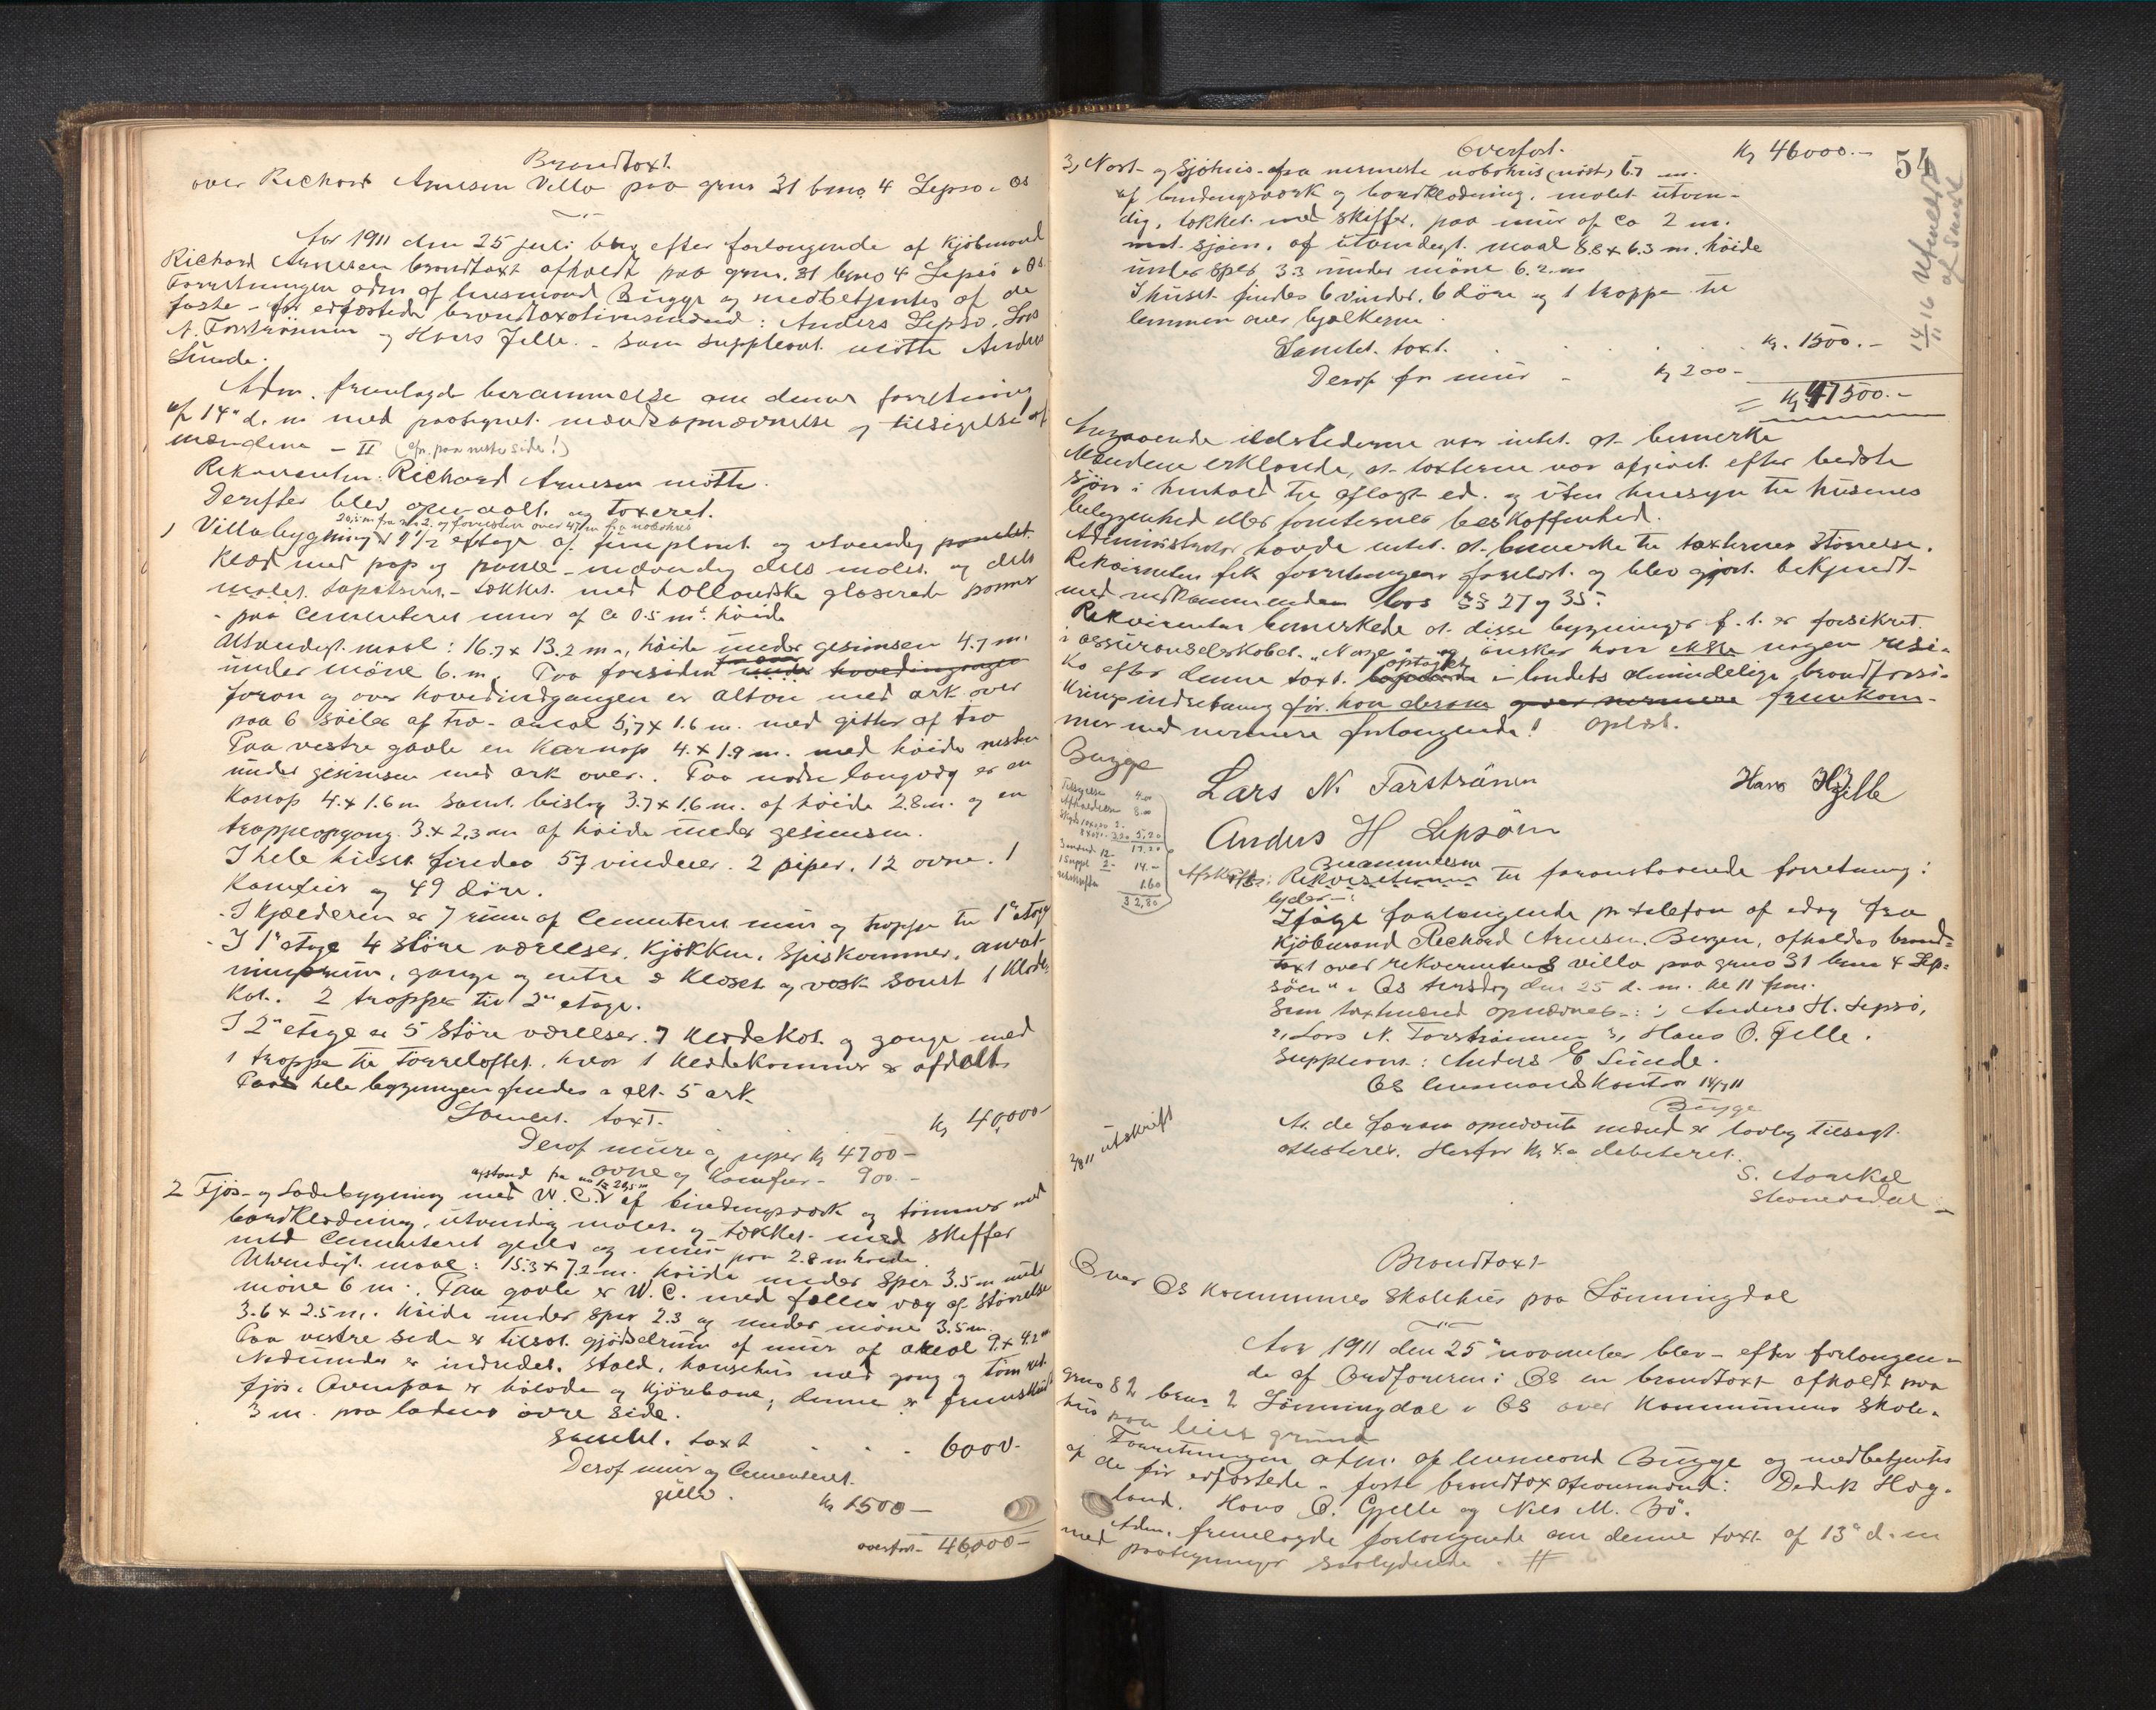 Brandtaxt.
over Richard Arnesen Villa paa grno 31 brno 4 Lepsø i Os
Aar 1911 den 25 juli blev efter forlangende af Kjøbmand
Richard Arnesen brandtaxt afholdt paa grno. 31 brno 4 Lepsø i Os
Forretningen adm af lensmand Bugge og medbetjentes af de
faste - før edfæstede brandtaxationsmænd: Anders Lepsø, Lars
N. Farstrønen og Hans Jelle. - Som suppleant mötte Anders
Sunde.
Adm. fremlagde berammelse om denne forretning
af 14de d. m med paategnet mændsopnævnelse og tilsigelse af
mændene - II (afsr. paa neste side!)
Rekvirenten: Richard Arnesen mötte.
Derefter blev opmaalt og taxeret.
20,5 m fra no 2. og forresten over 47 m fra nabohus
1 Villabygning 1 1/2 etage af tømplank og utvendig panelet
Klæd med pap og panel - indvendig dels malet og dels
malet tapetseret - tækket med hollandske glaserede panner
- paa Cementeret mur af ca 0.5 ms höide
Utvendigt maal: 16.7 x 13.2 m., höide under gesimsen 4.7 m.
under möne 6. m. Paa forsiden under hovedingangen
foran og over hovedindgangen er altan med ark over
paa 6 söiler af træ - areal 5,7 x 1.6 m. med gitter af træ
Paa vestre gavle en Karnap 4. x 1.9 m. med höide nesten
under gesimsen med ark over. Paa nodre langvæg er en
Karnap 4. x 1.6 m samt bislag 3.7 x 1.6 m. af höide 2.8 m. og en
trappeopgang. 3. x 2,3 m af höide under gesimsen.
I hele huset findes 57 vinduer. 2 piper, 12 ovne. 1
Komfur og 49 döre.
- I Kjælderen er 7 rum af Cementeret mur og trappe til 1ste etage
- I 1ste etage 4 större værelser, Kjøkken, Spiskammer, anret-
ningsrum, gange og entre 2 Kloset og vask samt 1 Klæde
Kot. 2 trapper til 2den etage.
I 2den etage er 5 större værelser. 7 Klædekot og gange med
1 trappe til Tørreloftet, hvor 1 Klædekammer er afdelt
Paa hele bygningen findes i alt. 5 ark
Samlet. taxt. Kr 40,000-
Deraf mure og piper Kr 4700-
ovne og Komfur - 900.-
afstand fra no 1 20,5 m
2 Fjøs- og Ladebygning med W.C. af bindingsværk og tømmer med
bordklædning, utvendig malet og tækket med skiffer
med Cementeret gulv og mur paa 2.8 m höide
Utvendigt maal: 15.3 x 7.2 m. höide under sper 3.5 m under
möne 6 m. Paa gavle er W.C. med fælles væg af Størrelse
3.6 x 2.5 m. höide under sper 2.3 og under möne 3.5 m.
Paa vestre side er tilsat gjødselrum af mur af areal 9. x 4.2 m
Nedunder er indredet. Stald, hønsehus med gang og tømret
fjøs. Ovenpaa er hølade og Kjørebane, denne er fremskudt
3 m. paa ladens övre side.
Samlet. taxt . . . 6000.-
Deraf mur og Cementeret
gulv. Kr 1500-
overført - 46000-
Overført. Kr 46000.-
54
14/11 16 Utmeldt af Smnl
3, Nøst- og Sjöhus - fra nermeste nabohus (nøst) 6.7 m.
af bindingsværk og bordklædning. malet utven-
dig, tækket med Skiffer, paa mur af ca 2 m.
mot sjöen. af utvendigt maal 8.8 x 6.3 m. höide
under sper 3.3 under möne 6.2 m
I huset findes 6 vinder. 6 döre og 1 trappe til
lemmen over bjælkerne.
Samlet. taxt. . . . Kr. 1500.-
Deraf for mur - Kr 200-
= Kr 47500.-
Angaaende ildstederne var intet at bemerke
Mændene erklærede, at taxterne var afgivet efter bedste
Sjön i henhold til aflagt ed. og uten hensyn til husenes
beliggenhed eller tomternes beskaffenhed.
Administrator havde intet. at bemerke til taxternes Størrelse.
Rekvirenten fik forretningen forelæst. og blev gjort bekjendt
med vedkommenden lovs §§ 27 og 35.
Rekvirenten bemerkede at disse bygninger f. t. er forsikret
i assuranceselskabet. „Norge" og ønsker han ikke nogen risi-
ko efter denne taxt. optaget i landets almindelige brandforsi-
kringsindretning før. han derom fremkom-
mer med nermere forlangende! Oplæst.
Bugge
Lars N. Farstrånen Hans Hjelle
Anders H Lepsöen
Tilsigelse 4.00
Afholdelsen 8.00
5,20
17.20
3 mænd 12
1 Suppl 2- 14.-
1.60
32,80
Afskrift: Berammelsen til foranstaaende forretning:
lyder:
Ifölge forlangende pr telefon af idag fra
Kjöbmand Richard Arnesen, Bergen, afholdes brand-
taxt over rekvirentens villa paa grno 31 brno 4 Lep-
söen" i Os tirsdag den 25 d. m. kl 11 fm.
Som taxtmænd opnævnes: 1, Anders H. Lepsø,
2, Lars N. Farströnen 3, Hans O. Gjelle.
Suppleant: Anders E Sunde.
Os lensmandskontor 14/7 11
Bugge
At de foran opnævnte mænd er lovlig tilsagt
attesterer. Herfor Kr 4.- debiteret.
S. Aarekol
3/8 11 utskrift
Brandtaxt
Over Os Kommunes Skolehus paa Lönningdal
Aar 1911 den 25de november blev - efter forlangen-
de af Ordføreren i Os en brandtaxt afholdt paa
grno 82 brno 2 Lönningdal i Os over Kommunens Skole-
hus paa leiet grund
Forretningen adm. af lensmand Bugge og medbetjentes
af de før edfæstede - faste brandtaxationsmænd: Dedrik Hæg-
land. Hans O. Gjelle og Nils M. Bø.
Adm. fremlagde forlangende om denne taxt af 13de d. m
med paategninger saalydende. #